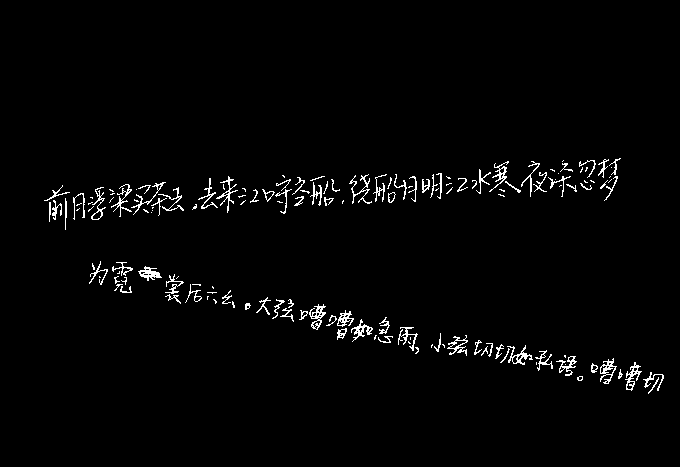 前月浮梁买茶去,去来江口守空船,绕船月明江水寒,夜深忽梦
为霓裳后六幺。大弦嘈嘈如急雨,小弦切切如私语。嘈嘈切